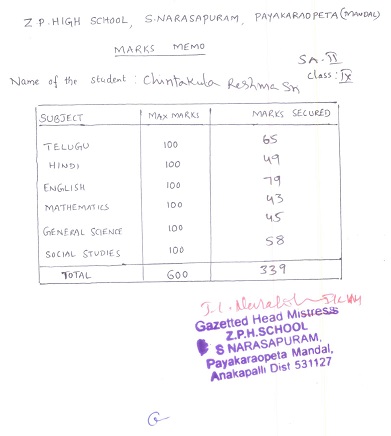 Z.P. HIGH SCHOOL, S.NARASAPURAM, PAYAKARAOPETA (MANDAL)
MARKS MEMO
SA-II
Name of the student : Chintakula Reshma Sri class: IX
SUBJECT MAX MARKS MARKS SECURED
TELUGU 100 65
HINDI 100 49
ENGLISH 100 79
MATHEMATICS 100 43
GENERAL SCIENCE 100 45
SOCIAL STUDIES 100 58
TOTAL 600 339
Gazetted Head Mistress
Z.P.H.SCHOOL
S NARASAPURAM,
Payakaraopeta Mandal,
Anakapalli Dist 531127